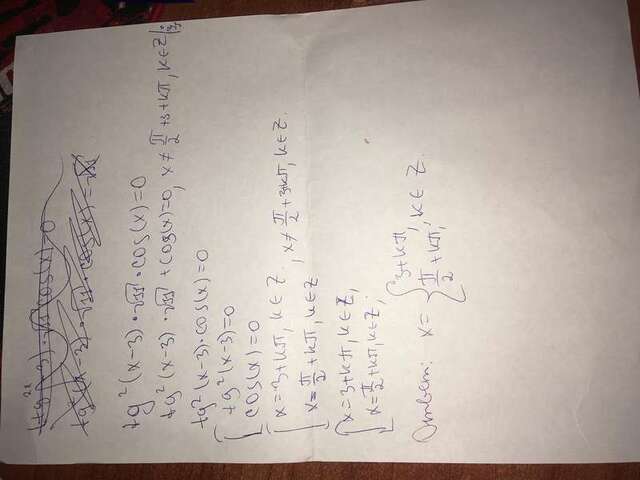 tg²(x-3)·√33·cos(x)=0
tg²(x-3)·√33+cos(x)=0, x≠π/2+3+kπ, k∈Z
tg²(x-3)·cos(x)=0
[tg²(x-3)=0
cos(x)=0
[x=3+kπ, k∈Z
x=π/2+kπ, k∈Z, x≠π/2+3+kπ, k∈Z.
[x=3+kπ, k∈Z,
x=π/2+kπ, k∈Z.
Ответ: x={3+kπ,
π/2+kπ, k∈Z.